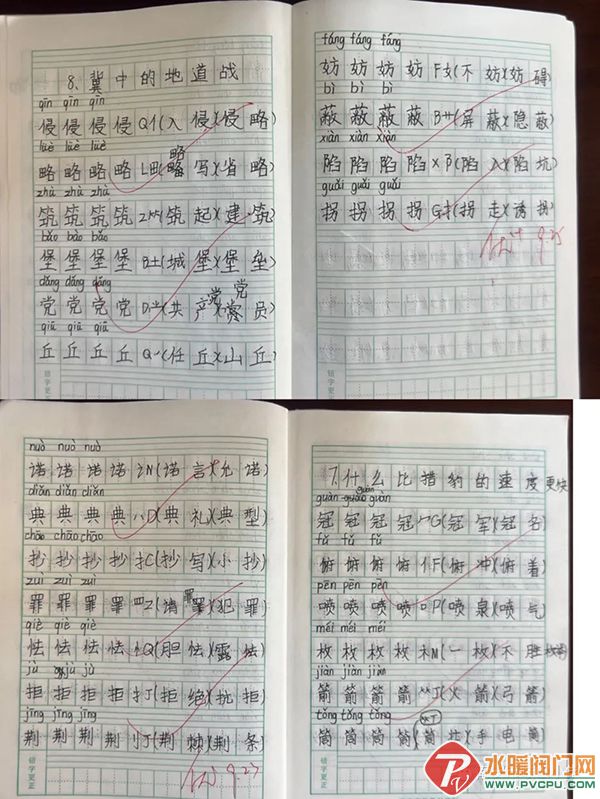 8、冀中的地道战
qīn qīn qīn
侵侵侵侵Q亻(入侵)(侵略)
lüè lüè lüè
略略略略L田(略写)(省略)
zhù zhù zhù
筑筑筑筑Z⺮(筑起)(建筑)
bǎo bǎo bǎo
堡堡堡堡B土(城堡)(堡垒)
dǎng dǎng dǎng
党党党党D(共产党)(党员)
qiū qiū qiū
丘丘丘丘Q(任丘)(山丘)
错字更正
fáng fáng fáng
妨妨妨妨F女(不妨)(妨碍)
bì bì bì
蔽蔽蔽蔽B艹(屏蔽)(隐蔽)
xiàn xiàn xiàn
陷陷陷陷X阝(陷入)(陷坑)
guǎi guǎi guǎi
拐拐拐拐G扌(拐走)(诱拐)
9.25
nuò nuò nuò
诺诺诺诺讠N(诺言)(允诺)
diǎn diǎn diǎn
典典典典八D(典礼)(典型)
chāo chāo chāo
抄抄抄抄扌C(抄写)(小抄)
zuì zuì zuì
罪罪罪罪罒Z(请罪)(犯罪)
qiè qiè qiè
怯怯怯怯忄Q(胆怯)(露怯)
jù jù jù
拒拒拒拒扌J(拒绝)(抗拒)
jīng jīng jīng
荆荆荆荆刂J(荆棘)(荆条)
错字更正
9.23
7、什么比猎豹的速度更快
guàn guàn guàn
冠冠冠冠冖G(冠军)(冠名)
fǔ fǔ fǔ
俯俯俯俯亻F(俯冲)(俯着)
pēn pēn pēn
喷喷喷喷口P(喷泉)(喷气)
méi méi méi
枚枚枚枚木M(一枚)(不胜枚举)
jiàn jiàn jiàn
箭箭箭箭⺮J(火箭)(弓箭)
tǒng tǒng tǒng
筒筒筒筒(手电筒)
错字更正
水暖阀门网
WWW.PVCPU.COM